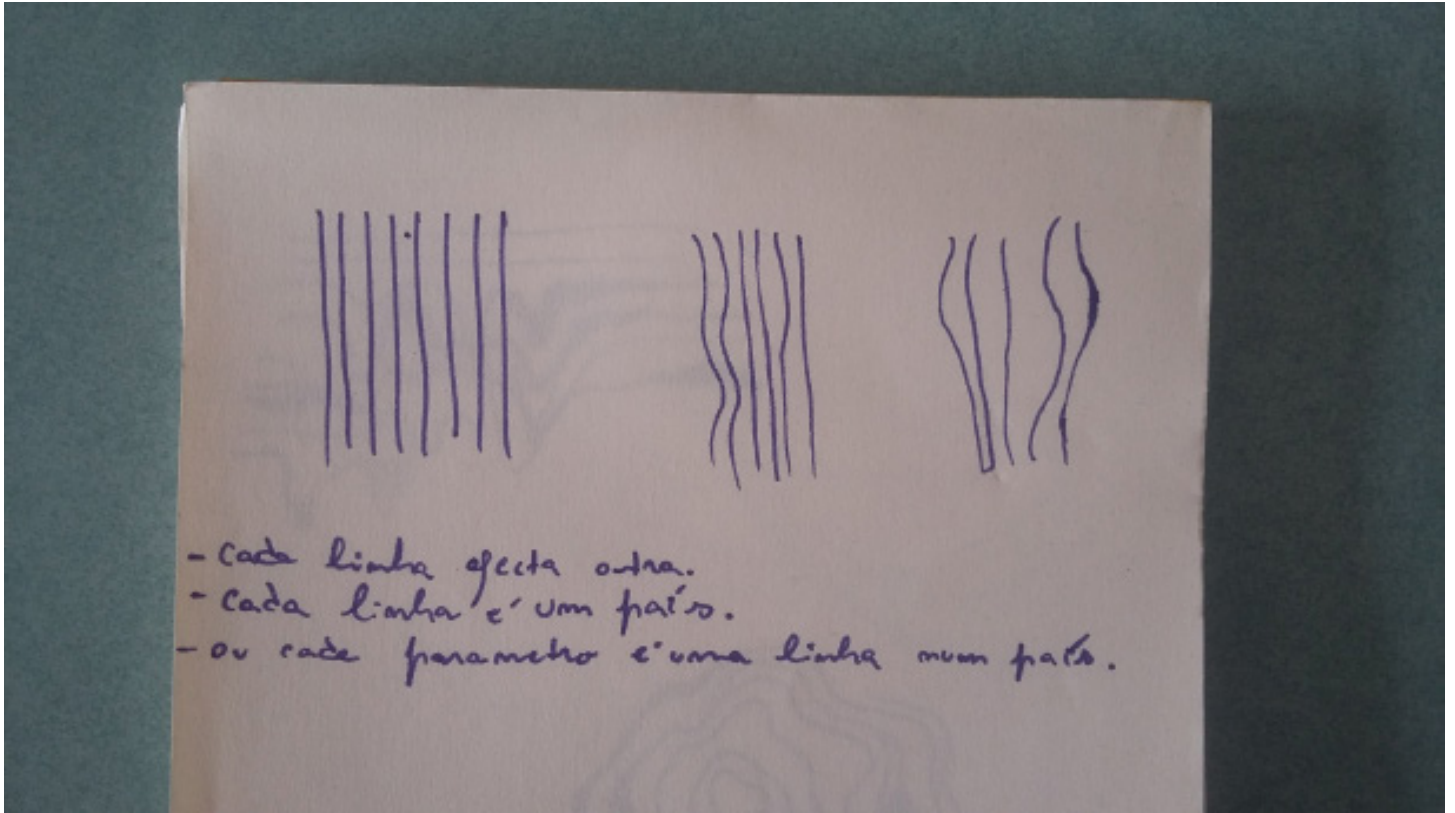 - Cada linha afecta outra.
- Cada linha é um país.
- ou cada parametro é uma linha num país.